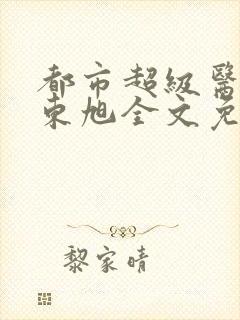 都市超級醫
東旭全文免
黎家晴